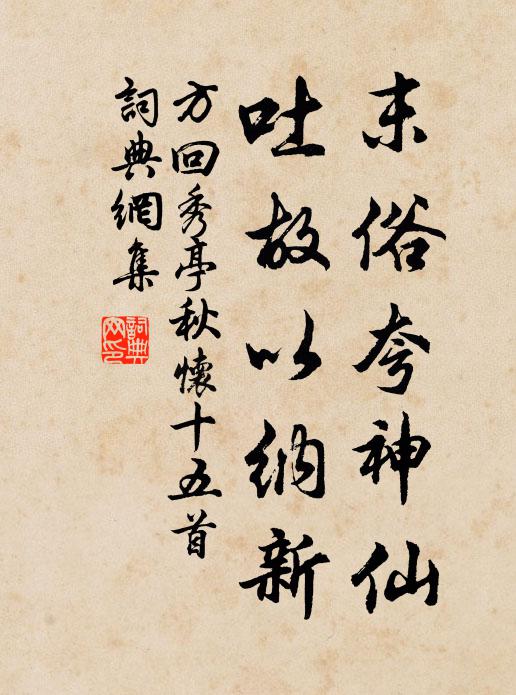 末俗夸神仙
吐故以纳新
方回秀亭秋懷十五首
詞典網集
詞典網印